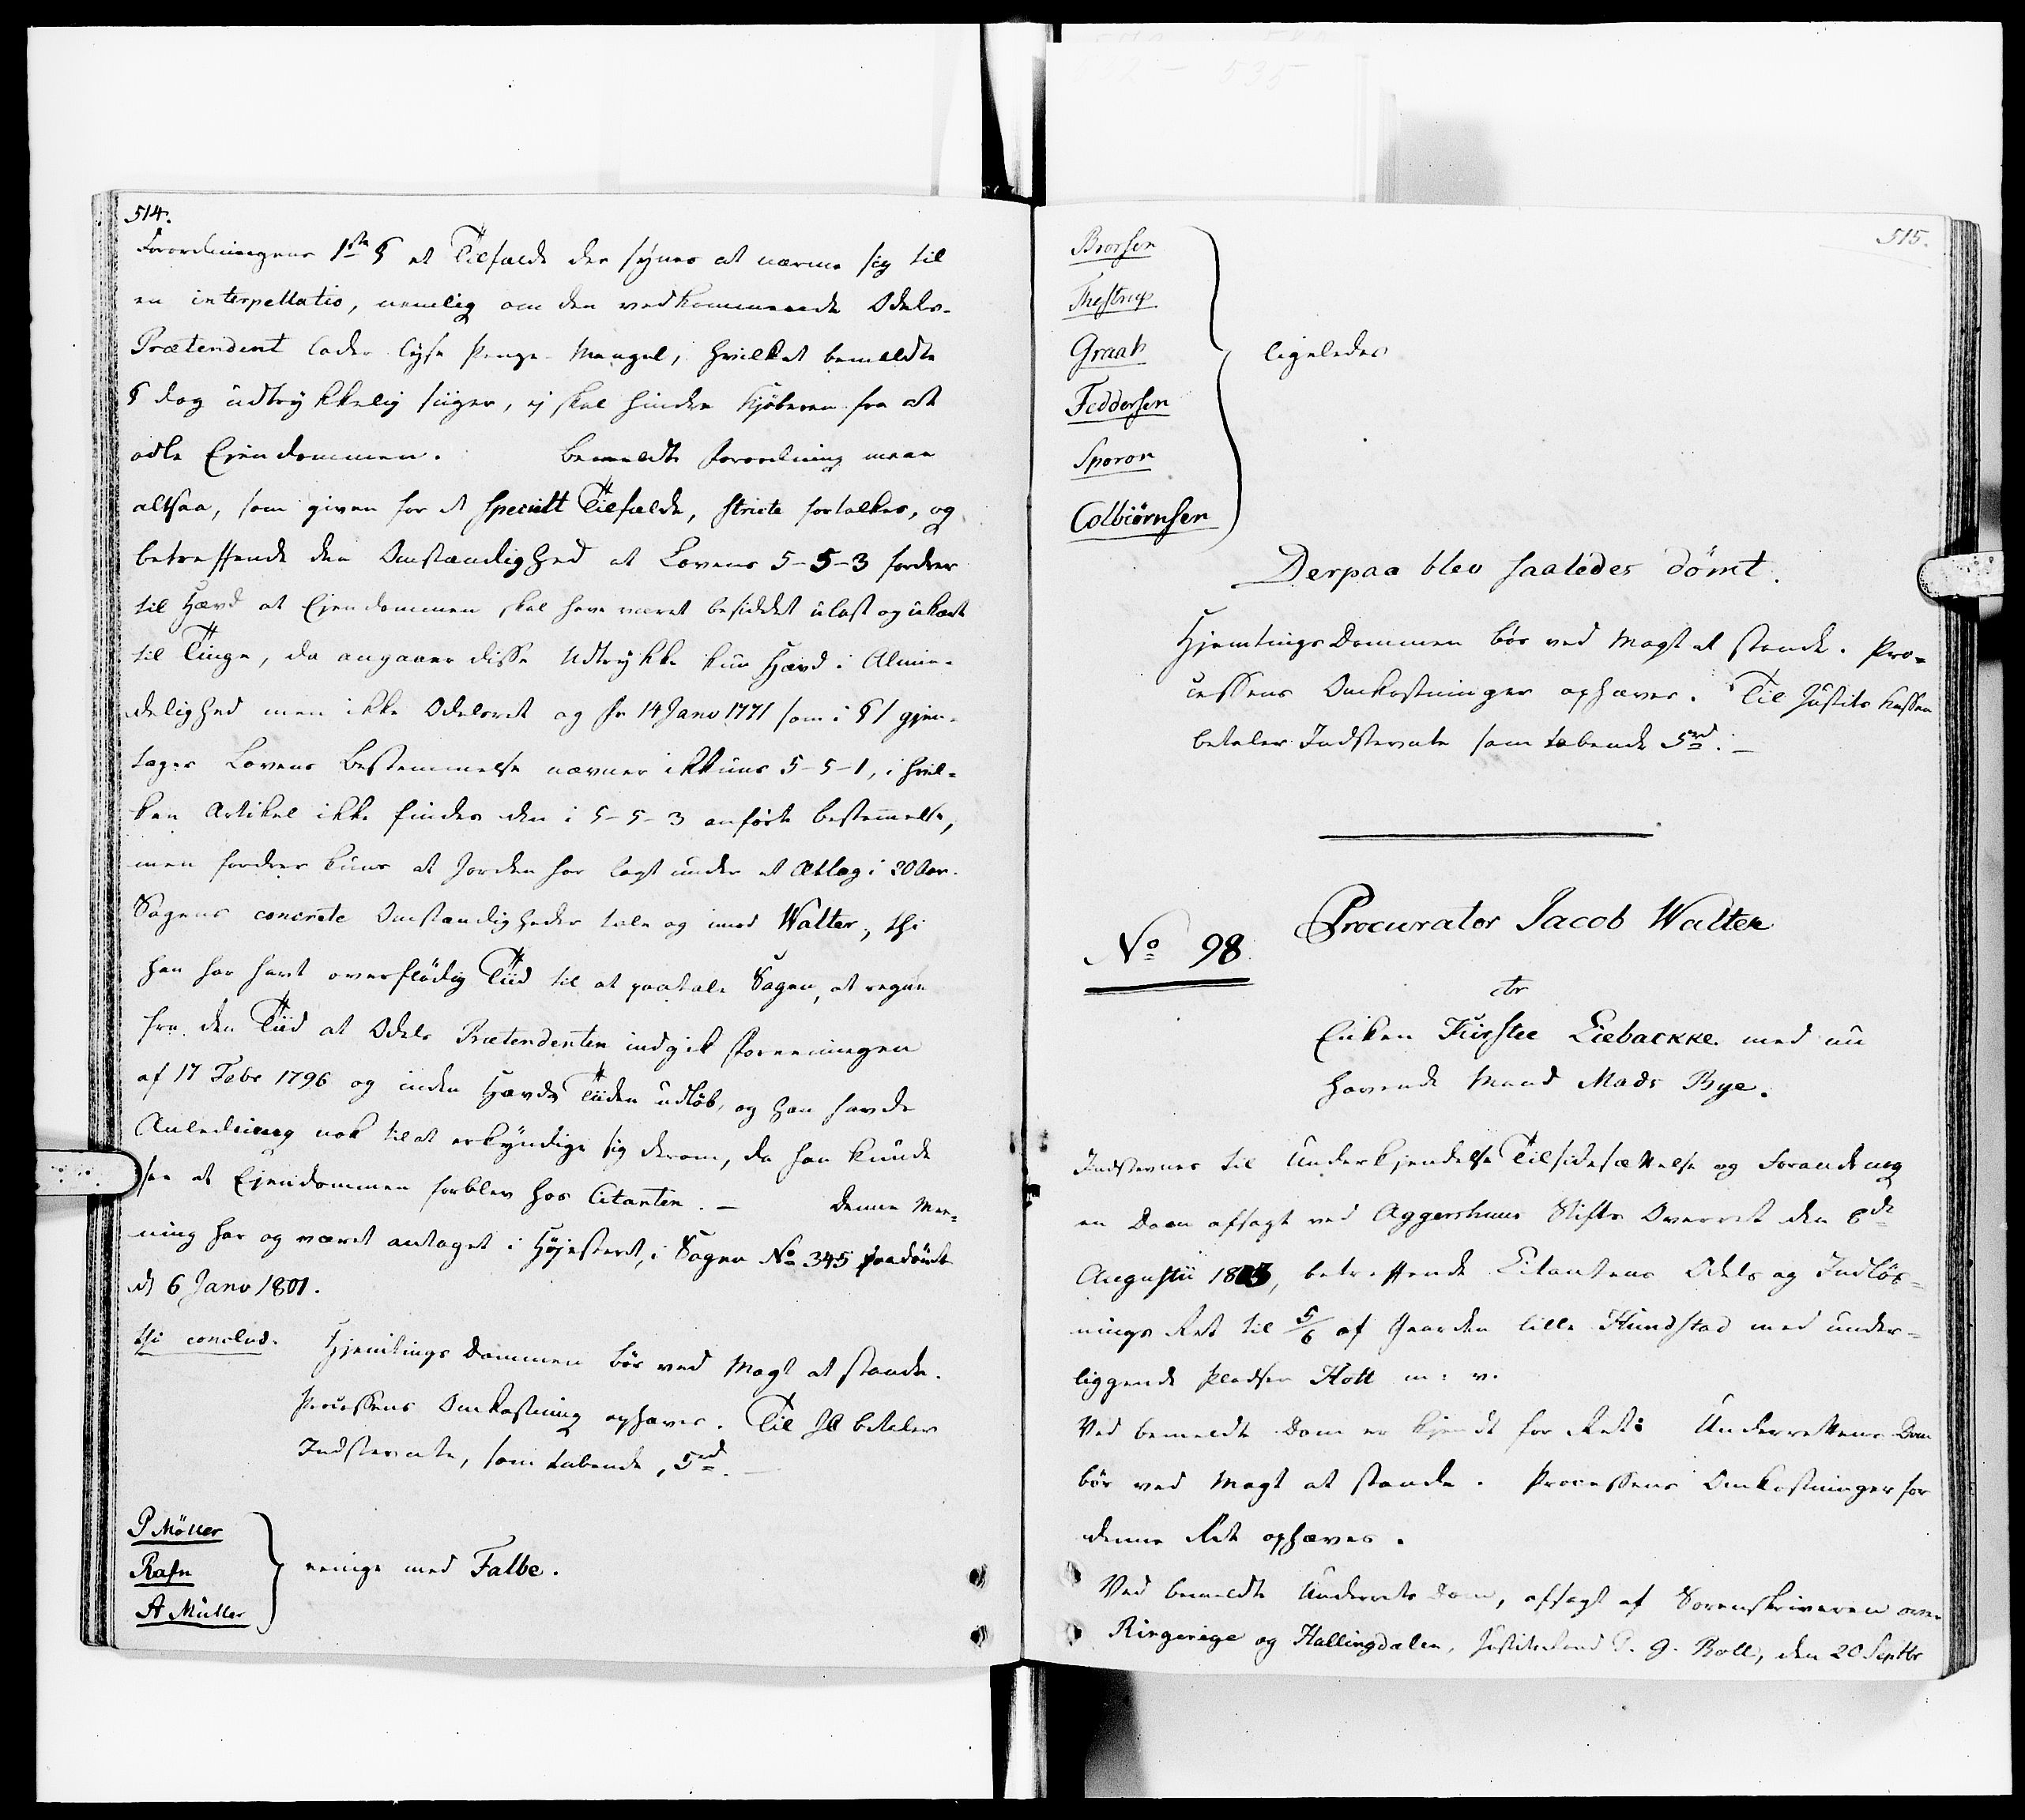 514.
Forordningens 1ste § et Tilfælde der synes at nærme sig til
en interpellatio, nemlig om den vedkommende Odels-
Prætendent lader lyse Penge-Mangel, hvilket bemeldte
§ dog udtrykkelig siiger, ej skal hindre Kjöberen fra at
odle Ejendommen. Bemeldte Forordning maae
altsaa, som given for et specielt Tilfælde, stricte fortolkes, og
betreffende den Omstændighed at Lovens 5-5-3 fordrer
til Hævd at Ejendommen skal have været besiddet ulast og ukært
til Tinge, da angaaer disse Udtrykke kun Hævd i Almin-
delighed men ikke Odelsret og Fr 14 Janv 1771 som i § 1 gjen-
tager Lovens Bestemmelse nævner ikkuns 5-5-1, i hvil-
ken Artikel ikke findes den i 5-5-3 anförte Bestemmelse,
men fordrer kuns at Jorden har lagt under et Ætlæg i 20 Aar.
Sagens concrete Omstændigheder tale og imod Walter, thi
han har havt overflödig Tiid til at paatale Sagen, at regne
fra den Tiid at Odels Prætendenten indgik Foreeningen
af 17 Febr 1796 og inden Hævds Tiiden udlöb, og han havde
Anledning nok til at erkyndige sig derom, da han kunde
see at Ejendommen forblev hos Citanten. — Denne Mee-
ning har og været antaget i Höjesteret, i Sagen No 345 paadömt
d 6 Janv 1801.
thi conclud. Hjemtings Dommen bör ved Magt at stande.
Processens Omkostning ophæves. Til JC betaler
Indstevnte, som tabende, 5rd. —
P Möller
Rafn
A Müller
eenige med Falbe.
515.
Brorsen
Thestrup
Graah
Feddersen
Sporon
Colbiörnsen
ligeledes
Derpaa blev saaledes dömt.
Hjemtings Dommen bör ved Magt at stande. Pro-
cessens Omkostninger ophæves. Til Justits Kassen
betaler Indstevnte som tabende 5rd. —
No 98.
Procurator Jacob Walter
ctr
Enken Kirstee Liebackke med nu
havende Mand Mads Bye.
Indstevnes til Underkjendelse Tilsidesættelse og Forandring
en Dom afsagt ved Aggershuus Stifts Overret den 8de
Augustii 1803, betreffende Citantens Odels og Indlös-
nings Ret til 5/6 af Gaarden lille Hundstad med under-
liggende Pladser Holt m: v.
Ved bemeldte Dom er kjendt for Ret: Underrettens Dom
bör ved Magt at stande. Processens Omkostninger for
denne Ret ophæves.
Ved bemeldte Underrets Dom, afsagt af Sorenskriveren over
Ringerige og Hallingdalen, Justitsraad P. G. Roll, den 20 Septbr